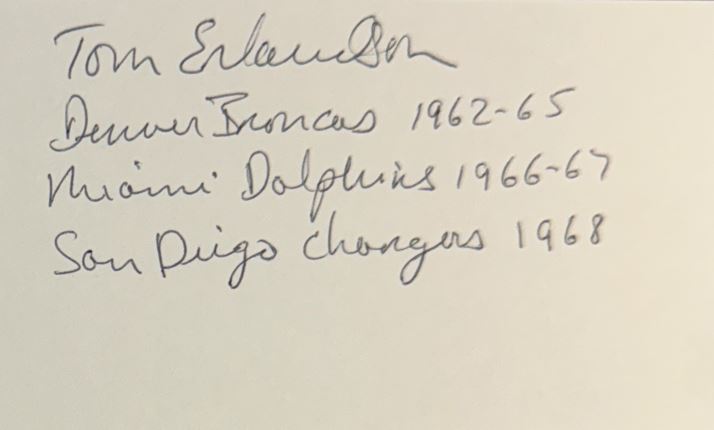 Tom Erlandson
Denver Broncos 1962-65
Miami Dolphins 1966-67
San Diego Chargers 1968